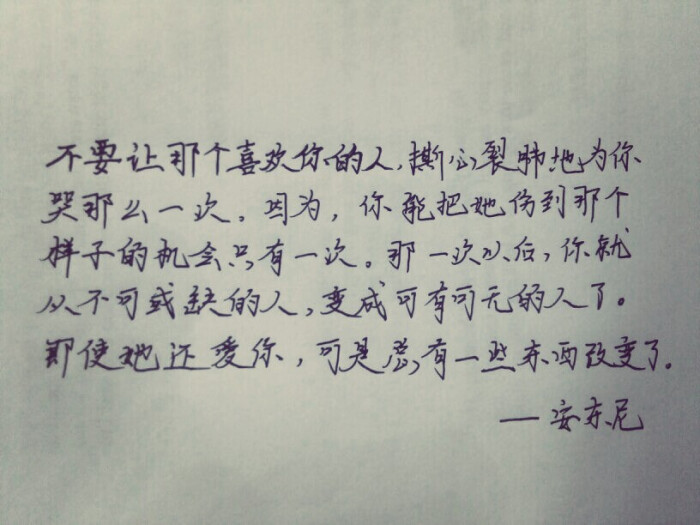 不要让那个喜欢你的人,撕心裂肺地为你
哭那么一次。因为,你能把她伤到那个
样子的机会只有一次。那一次以后,你就
从不可或缺的人,变成可有可无的人了。
即使她还愛你,可是总有一些东西改变了.
——安东尼